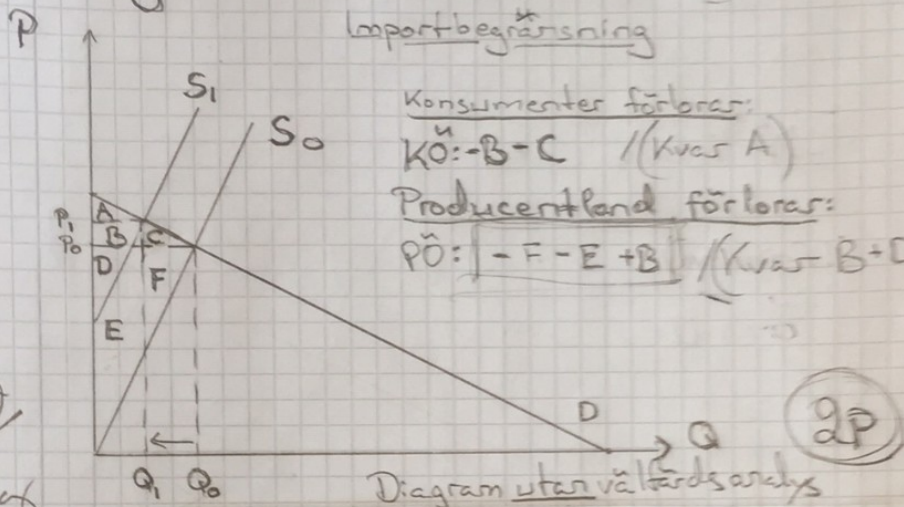 P
Importbegränsning
S1
S0
Konsumenter förlorar:
KÖ: -B - C /(Kvar A)
Producentland förlorar:
PÖ: - F - E + B /(Kvar B+D
P1
P0
A
B
C
D
F
E
D
Q
2p
Q1
Q0
Diagram utan välfärdsanalys